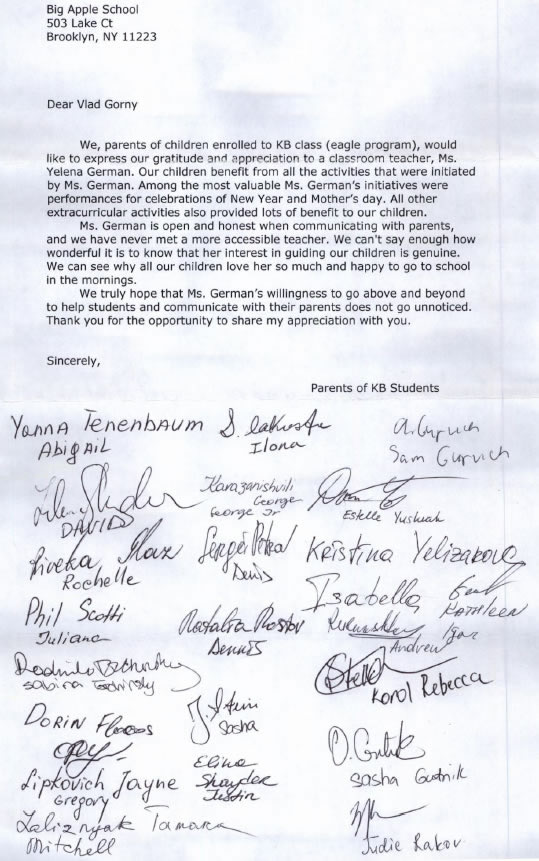 Big Apple School
503 Lake Ct
Brooklyn, NY 11223
Dear Vlad Gorny
We, parents of children enrolled to KB class (eagle program), would
like to express our gratitude and appreciation to a classroom teacher, Ms.
Yelena German. Our children benefit from all the activities that were initiated
by Ms. German. Among the most valuable Ms. German's initiatives were
performances for celebrations of New Year and Mother's day. All other
extracurricular activities also provided lots of benefit to our children.
Ms. German is open and honest when communicating with parents,
and we have never met a more accessible teacher. We can't say enough how
wonderful it is to know that her interest in guiding our children is genuine.
We can see why all our children love her so much and happy to go to school
in the mornings.
We truly hope that Ms. German's willingness to go above and beyond
to help students and communicate with their parents does not go unnoticed.
Thank you for the opportunity to share my appreciation with you.
Sincerely,
Parents of KB Students
Yanna Tenenbaum
Abigail
Ilona
Sam Gurvich
DAVID
Karazanishvili
George
George Jr
Estelle
Riveka
Rochelle
Sergei
Denis
Kristina Yelizakova
Isabella
Kathleen
Phil Scotti
Juliana
Natalia Rostov
Dennis
Andrew
Igor
Sabina
Stella
Karol Rebecca
DORIN
J. Stein
Sasha
O. Gutnik
Sasha Gutnik
Lipkovich Jayne
Gregory
Elina
Shayder
Justin
Zaliznyak Tamara
Mitchell
Judie Rakov